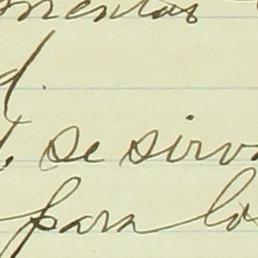 mentos
d.
se sirva
para lo